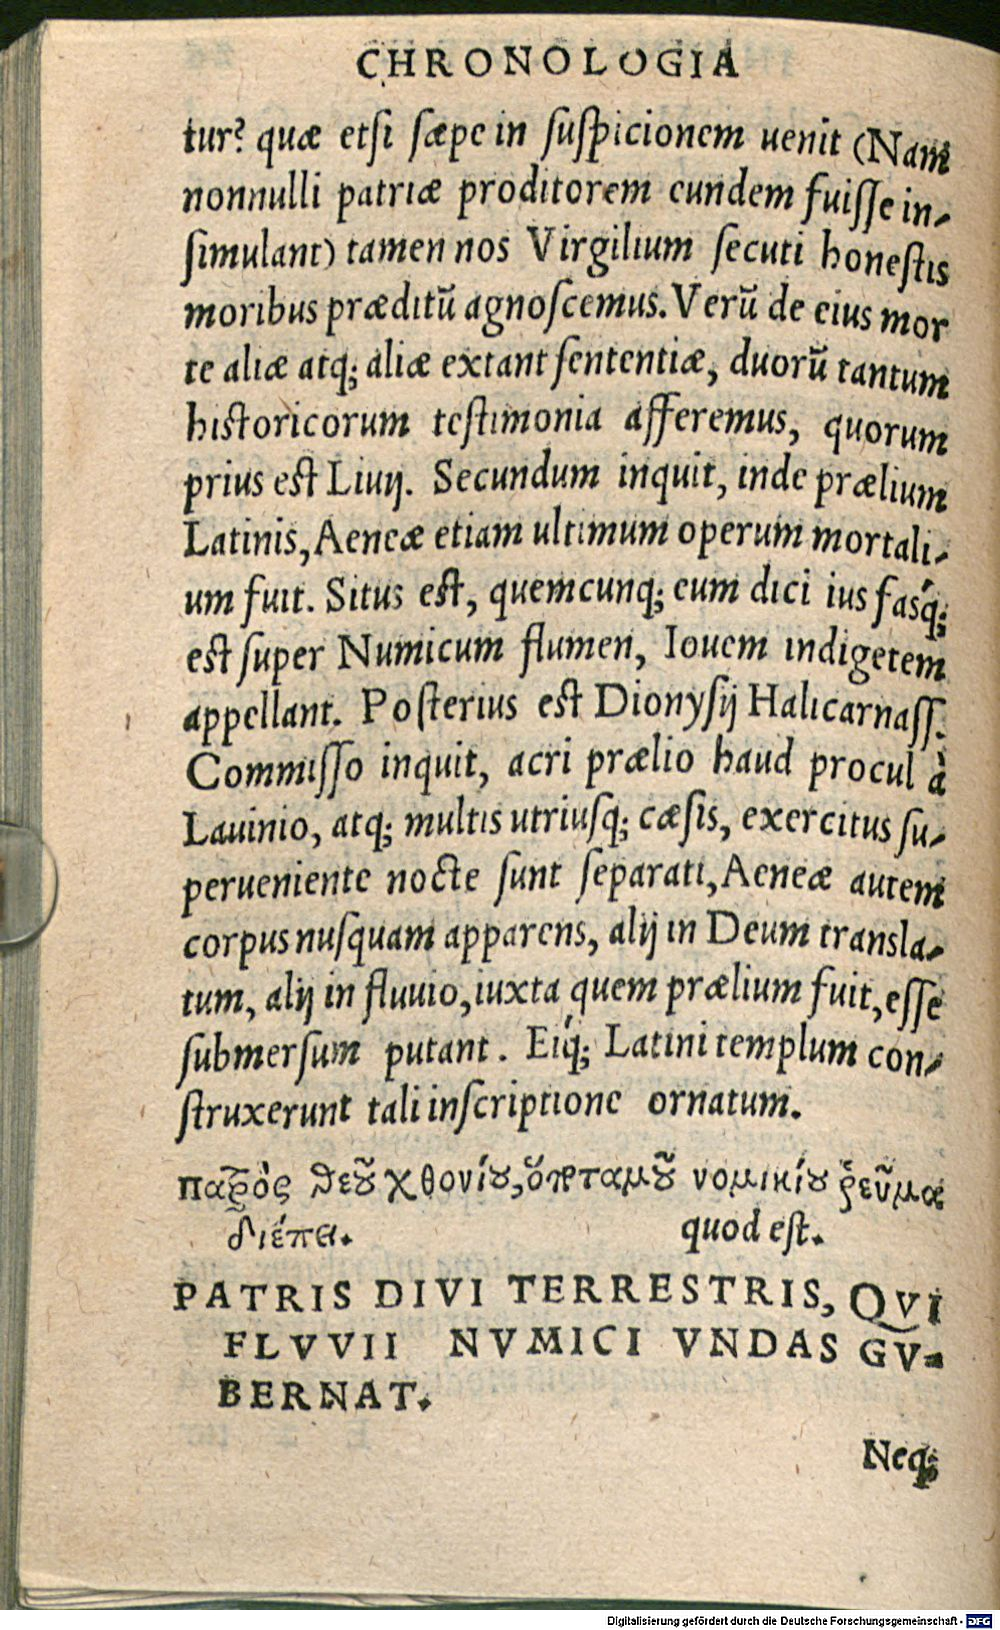 CHRONOLOGIA
tur? quæ etſi ſæpe in ſuſpicionem uenit (Nam
nonnulli patriæ proditorem eundem fuiſſe in-
ſimulant) tamen nos Virgilium ſecuti honeſtis
moribus præditũ agnoſcemus. Verũ de eius mor
te aliæ atq; aliæ extant ſententiæ, duorũ tantum
hiſtoricorum teſtimonia afferemus, quorum
prius eſt Liuij. Secundum inquit, inde prælium
Latinis, Aeneæ etiam ultimum operum mortali-
um fuit. Situs eſt, quemcunq; eum dici ius faśq;
eſt ſuper Numicum flumen, Iouem indigetem
appellant. Poſterius eſt Dionyſij Halicarnaſſ.
Commiſſo inquit, acri prælio haud procul à
Lauinio, atq; multis utriuſq; cæſis, exercitus ſu-
perueniente nocte ſunt ſeparati, Aeneæ autem
corpus nuſquam apparens, alij in Deum transla-
tum, alij in fluuio, iuxta quem prælium fuit, eſſe
ſubmerſum putant. Eiq́; Latini templum con-
ſtruxerunt tali inſcriptione ornatum.
πατρὸς θεοῦ χθονίου, ὃς ποταμοῦ νομικίου ῥεῦμα
διέπει. quod eſt.
PATRIS DIVI TERRESTRIS, QVI
FLVVII NVMICI VNDAS GV-
BERNAT.
Neq;
Digitalisierung gefördert durch die Deutsche Forschungsgemeinschaft - DFG